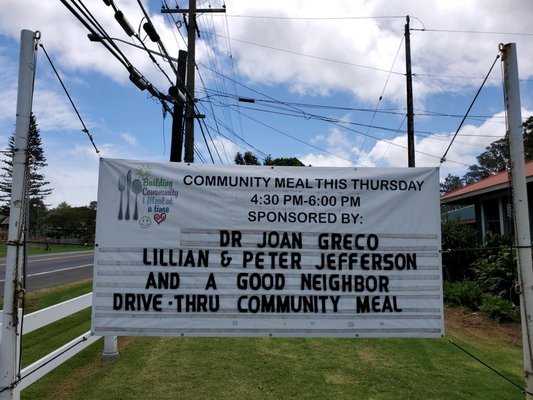 Building
Community
1 Meal at
a time
COMMUNITY MEAL THIS THURSDAY
4:30 PM-6:00 PM
SPONSORED BY:
DR JOAN GRECO
LILLIAN & PETER JEFFERSON
AND A GOOD NEIGHBOR
DRIVE-THRU COMMUNITY MEAL